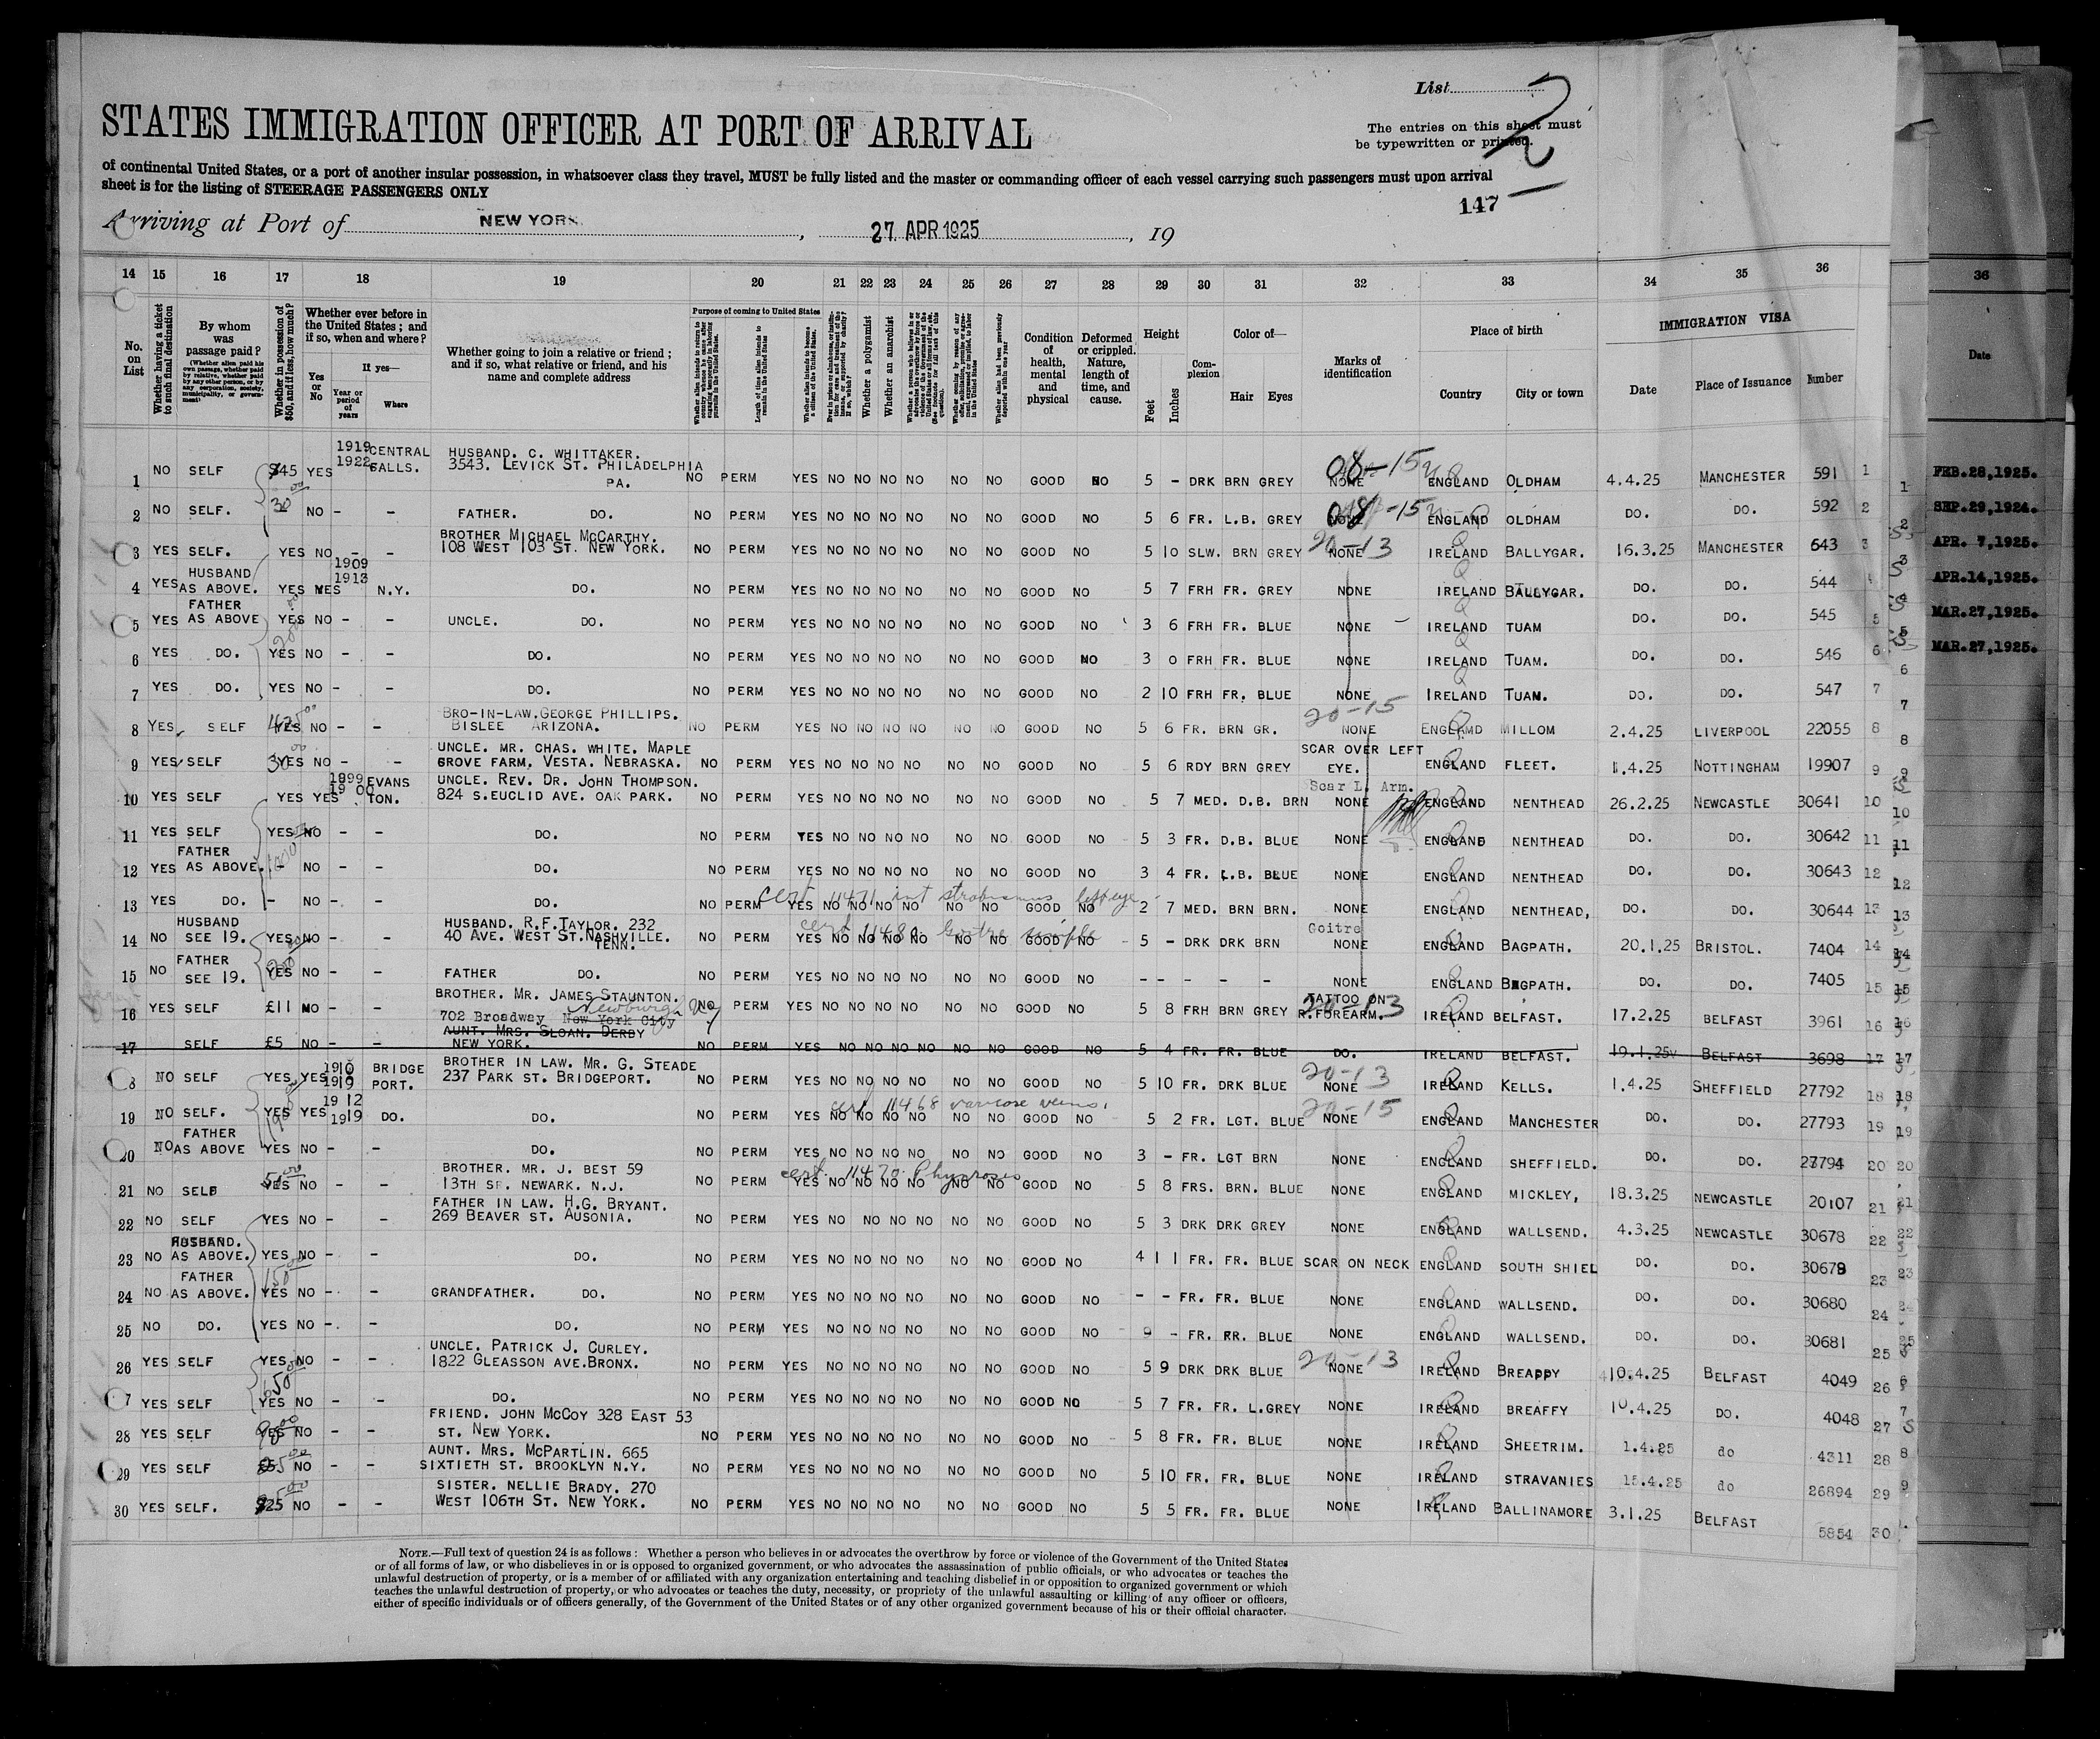 List 2
STATES IMMIGRATION OFFICER AT PORT OF ARRIVAL
The entries on this sheet must
be typewritten or printed.
of continental United States, or a port of another insular possession, in whatsoever class they travel, MUST be fully listed and the master or commanding officer of each vessel carrying such passengers must upon arrival
sheet is for the listing of STEERAGE PASSENGERS ONLY
147
Arriving at Port of NEW YORK, 27 APR 1925, 19
14 15 16 17 18 19 20 21 22 23 24 25 26 27 28 29 30 31 32 33 34 35 36 36
No. on List
Whether having a ticket to such final destination
By whom was passage paid?
(Whether alien paid his own passage, whether paid by relative, whether paid by any other person, or by any corporation, society, municipality, or government)
Whether in possession of $50, and if less, how much?
Whether ever before in the United States; and if so, when and where?
Yes or No
If yes—
Year or period of years
Where
Whether going to join a relative or friend; and if so, what relative or friend, and his name and complete address
Purpose of coming to United States
Length of time alien intends to remain in the United States
Whether alien intends to become a citizen of the United States.
Whether a polygamist
Whether an anarchist
Condition of health, mental and physical
Deformed or crippled. Nature, length of time, and cause.
Height
Feet
Inches
Complexion
Color of—
Hair Eyes
Marks of identification
Place of birth
Country City or town
IMMIGRATION VISA
Date Place of Issuance Number
Date
1 NO SELF $45 YES 1919 1922 CENTRAL FALLS. HUSBAND. C. WHITTAKER. 3543. LEVICK ST. PHILADELPHIA PA. NO PERM YES NO NO NO NO NO NO GOOD NO 5 - DRK BRN GREY NONE 08-15 ENGLAND OLDHAM 4.4.25 MANCHESTER 591 1
2 NO SELF. 30 NO - - FATHER. DO. NO PERM YES NO NO NO NO NO NO GOOD NO 5 6 FR. L.B. GREY NONE 08-15 ENGLAND OLDHAM DO. DO. 592 2
3 YES SELF. YES NO - - BROTHER MICHAEL MCCARTHY. 108 WEST 103 ST. NEW YORK. NO PERM YES NO NO NO NO NO NO GOOD NO 5 10 SLW. BRN GREY NONE 20-13 IRELAND BALLYGAR. 16.3.25 MANCHESTER 643 3
4 YES HUSBAND AS ABOVE. YES YES 1909 1913 N.Y. DO. NO PERM YES NO NO NO NO NO NO GOOD NO 5 7 FRH FR. GREY NONE IRELAND BALLYGAR. DO. DO. 544
5 YES FATHER AS ABOVE YES NO - - UNCLE. DO. NO PERM YES NO NO NO NO NO NO GOOD NO 3 6 FRH FR. BLUE NONE IRELAND TUAM DO. DO. 545 5
6 YES DO. YES NO - - DO. NO PERM YES NO NO NO NO NO NO GOOD NO 3 0 FRH FR. BLUE NONE IRELAND TUAM. DO. DO. 546 6
7 YES DO. YES NO - - DO. NO PERM YES NO NO NO NO NO NO GOOD NO 2 10 FRH FR. BLUE NONE IRELAND TUAM. DO. DO. 547 7
8 YES SELF YES NO - - BRO-IN-LAW.GEORGE PHILLIPS. BISLEE ARIZONA. NO PERM YES NO NO NO NO NO NO GOOD NO 5 6 FR. BRN GR. NONE 20-15 ENGLAND MILLOM 2.4.25 LIVERPOOL 22055 8
9 YES SELF 30 YES NO - - UNCLE. MR. CHAS. WHITE. MAPLE GROVE FARM. VESTA. NEBRASKA. NO PERM YES NO NO NO NO NO NO GOOD NO 5 6 RDY BRN GREY SCAR OVER LEFT EYE. ENGLAND FLEET. 1.4.25 NOTTINGHAM 19907 9
10 YES SELF YES YES 1899 1900 EVANS TON. UNCLE. REV. DR. JOHN THOMPSON. 824 S.EUCLID AVE. OAK PARK. NO PERM YES NO NO NO NO NO NO GOOD NO 5 7 MED. D.B. BRN Scar L. Arm. NONE ENGLAND NENTHEAD 26.2.25 NEWCASTLE 30641 10
11 YES SELF YES NO - - DO. NO PERM YES NO NO NO NO NO NO GOOD NO 5 3 FR. D.B. BLUE NONE ENGLAND NENTHEAD DO. DO. 30642 11
12 YES FATHER AS ABOVE. - NO - - DO. NO PERM YES NO NO NO NO NO NO GOOD NO 3 4 FR. L.B. BLUE NONE ENGLAND NENTHEAD DO. DO. 30643 12
13 YES DO. - NO - - DO. NO PERM YES NO NO NO NO NO NO GOOD NO 2 7 MED. BRN BRN. NONE ENGLAND NENTHEAD, DO. DO. 30644 13
cert 11471 int strabismus left eye
14 NO HUSBAND SEE 19. YES NO - - HUSBAND. R.F.TAYLOR. 232 40 AVE. WEST ST.NASHVILLE. TENN. NO PERM YES NO NO NO NO NO NO GOOD NO 5 - DRK DRK BRN Goitre NONE ENGLAND BAGPATH. 20.1.25 BRISTOL. 7404 14
Goitre simple
15 NO FATHER SEE 19. YES NO - - FATHER DO. NO PERM YES NO NO NO NO NO NO GOOD NO - - - - - NONE ENGLAND BAGPATH. DO. DO. 7405 15
16 YES SELF £11 NO - - BROTHER. MR. JAMES STAUNTON. 702 Broadway New York City Newburgh NY NO PERM YES NO NO NO NO NO NO GOOD NO 5 8 FRH BRN GREY TATTOO ON R.FOREARM. 20-13 IRELAND BELFAST. 17.2.25 BELFAST 3961 16
17 SELF £5 NO - - AUNT. MRS. SLOAN. DERBY NEW YORK. NO PERM YES NO NO NO NO NO NO GOOD NO 5 4 FR. FR. BLUE DO. IRELAND BELFAST. 19.1.25 BELFAST 3698 17
18 NO SELF YES YES 1910 1919 BRIDGE PORT. BROTHER IN LAW. MR. G. STEADE 237 PARK ST. BRIDGEPORT. NO PERM YES NO NO NO NO NO NO GOOD NO 5 10 FR. DRK BLUE NONE 20-13 IRELAND KELLS. 1.4.25 SHEFFIELD 27792 18
19 NO SELF. YES YES 1912 1919 DO. DO. NO PERM YES NO NO NO NO NO NO GOOD NO 5 2 FR. LGT. BLUE NONE 20-15 ENGLAND MANCHESTER DO. DO. 27793 19
cert 11468 varicose veins.
20 NO FATHER AS ABOVE YES NO - - DO. NO PERM YES NO NO NO NO NO NO GOOD NO 3 - FR. LGT BRN NONE ENGLAND SHEFFIELD. DO. DO. 27794 20
21 NO SELF YES NO - - BROTHER. MR. J. BEST 59 13TH ST. NEWARK. N.J. NO PERM YES NO NO NO NO NO NO GOOD NO 5 8 FRS. BRN. BLUE NONE ENGLAND MICKLEY, 18.3.25 NEWCASTLE 20107 21
cert. 11470
22 NO SELF YES NO - - FATHER IN LAW. H.G. BRYANT. 269 BEAVER ST. AUSONIA. NO PERM YES NO NO NO NO NO NO GOOD NO 5 3 DRK DRK GREY NONE ENGLAND WALLSEND. 4.3.25 NEWCASTLE 30678 22
23 NO HUSBAND. AS ABOVE. YES NO - - DO. NO PERM YES NO NO NO NO NO NO GOOD NO 4 11 FR. FR. BLUE SCAR ON NECK ENGLAND SOUTH SHIEL DO. DO. 30679 23
24 NO FATHER AS ABOVE. YES NO - - GRANDFATHER. DO. NO PERM YES NO NO NO NO NO NO GOOD NO - - FR. FR. BLUE NONE ENGLAND WALLSEND. DO. DO. 30680 24
25 NO DO. YES NO - - DO. NO PERM YES NO NO NO NO NO NO GOOD NO 9 - FR. FR. BLUE NONE ENGLAND WALLSEND. DO. DO. 30681 25
26 YES SELF YES NO - - UNCLE. PATRICK J. CURLEY. 1822 GLEASSON AVE.BRONX. NO PERM YES NO NO NO NO NO NO GOOD NO 5 9 DRK DRK BLUE NONE 20-13 IRELAND BREAPPY 10.4.25 BELFAST 4049 26
7 YES SELF YES NO - - DO. NO PERM YES NO NO NO NO NO NO GOOD NO 5 7 FR. FR. L.GREY NONE IRELAND BREAFFY 10.4.25 DO. 4048 27
28 YES SELF YES NO - - FRIEND. JOHN MCCOY 328 EAST 53 ST. NEW YORK. NO PERM YES NO NO NO NO NO NO GOOD NO 5 8 FR. FR. BLUE NONE IRELAND SHEETRIM. 1.4.25 do 4311 28
29 YES SELF £5. NO - - AUNT. MRS. MCPARTLIN. 665 SIXTIETH ST. BROOKLYN N.Y. NO PERM YES NO NO NO NO NO NO GOOD NO 5 10 FR. FR. BLUE NONE IRELAND STRAVANIES 15.4.25 do 26894 29
30 YES SELF. $25 NO - - SISTER. NELLIE BRADY. 270 WEST 106TH ST. NEW YORK. NO PERM YES NO NO NO NO NO NO GOOD NO 5 5 FR. FR. BLUE NONE IRELAND BALLINAMORE 3.1.25 BELFAST 5854 30
FEB.28,1925.
SEP.29,1924.
APR. 7,1925.
APR.14,1925.
MAR.27,1925.
MAR.27,1925.
NOTE.—Full text of question 24 is as follows: Whether a person who believes in or advocates the overthrow by force or violence of the Government of the United States
or of all forms of law, or who disbelieves in or is opposed to organized government, or who advocates the assassination of public officials, or who advocates or teaches the
unlawful destruction of property, or is a member of or affiliated with any organization entertaining and teaching disbelief in or opposition to organized government or which
teaches the unlawful destruction of property, or who advocates or teaches the duty, necessity, or propriety of the unlawful assaulting or killing of any officer or officers,
either of specific individuals or of officers generally, of the Government of the United States or of any other organized government because of his or their official character.